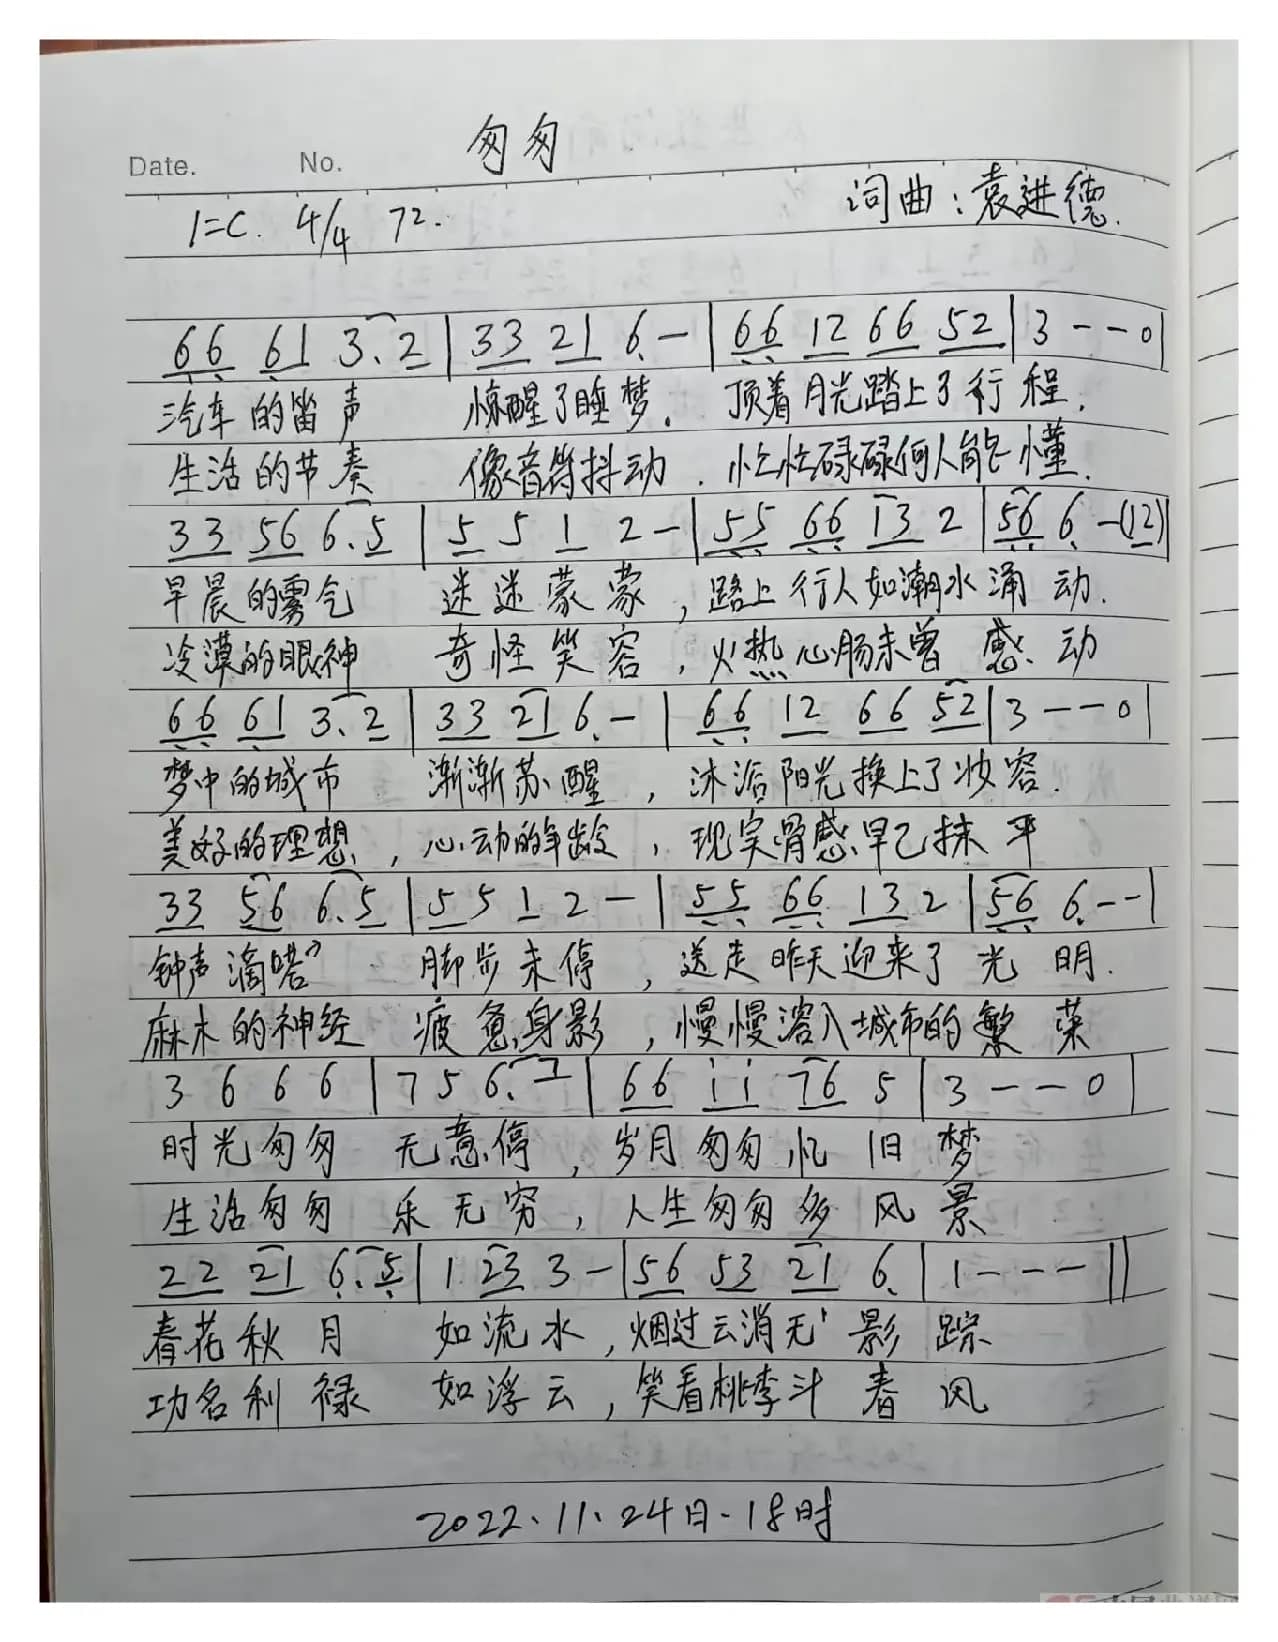 匆匆
Date. No.
词曲：袁进德.
1=C. 4/4 72.
66 61 3.2 | 33 21 6 — | 66 12 66 52 | 3 - - 0 |
汽车的笛声 惊醒了睡梦. 顶着月光踏上了行程.
生活的节奏 像音符抖动. 忙忙碌碌何人能懂.
33 56 6.5 | 5 5 1 2 — | 55 66 13 2 | 56 6 -(12) |
早晨的雾气 迷迷蒙蒙, 路上行人如潮水涌动.
冷漠的眼神 奇怪笑容, 火热心肠未曾感动
66 61 3.2 | 33 21 6 — | 66 12 66 52 | 3 - - 0 |
梦中的城市 渐渐苏醒, 沐浴阳光换上了妆容.
美好的理想, 心动的年龄, 现实骨感早已抹平
33 56 6.5 | 5 5 1 2 — | 55 66 13 2 | 56 6 - - |
钟声滴嗒" 脚步未停, 送走昨天迎来了光明.
麻木的神经 疲惫身影, 慢慢溶入城市的繁荣
3 6 6 6 | 7 5 6.7 | 66 i i 76 5 | 3 - - 0 |
时光匆匆 无意停, 岁月匆匆忆旧梦
生活匆匆 乐无穷, 人生匆匆多风景
22 21 6.5 | 1 23 3 — | 56 53 21 6 | 1 - - - ||
春花秋月 如流水, 烟过云消无影踪
功名利禄 如浮云, 笑看桃李斗春风
2022.11.24日.18时